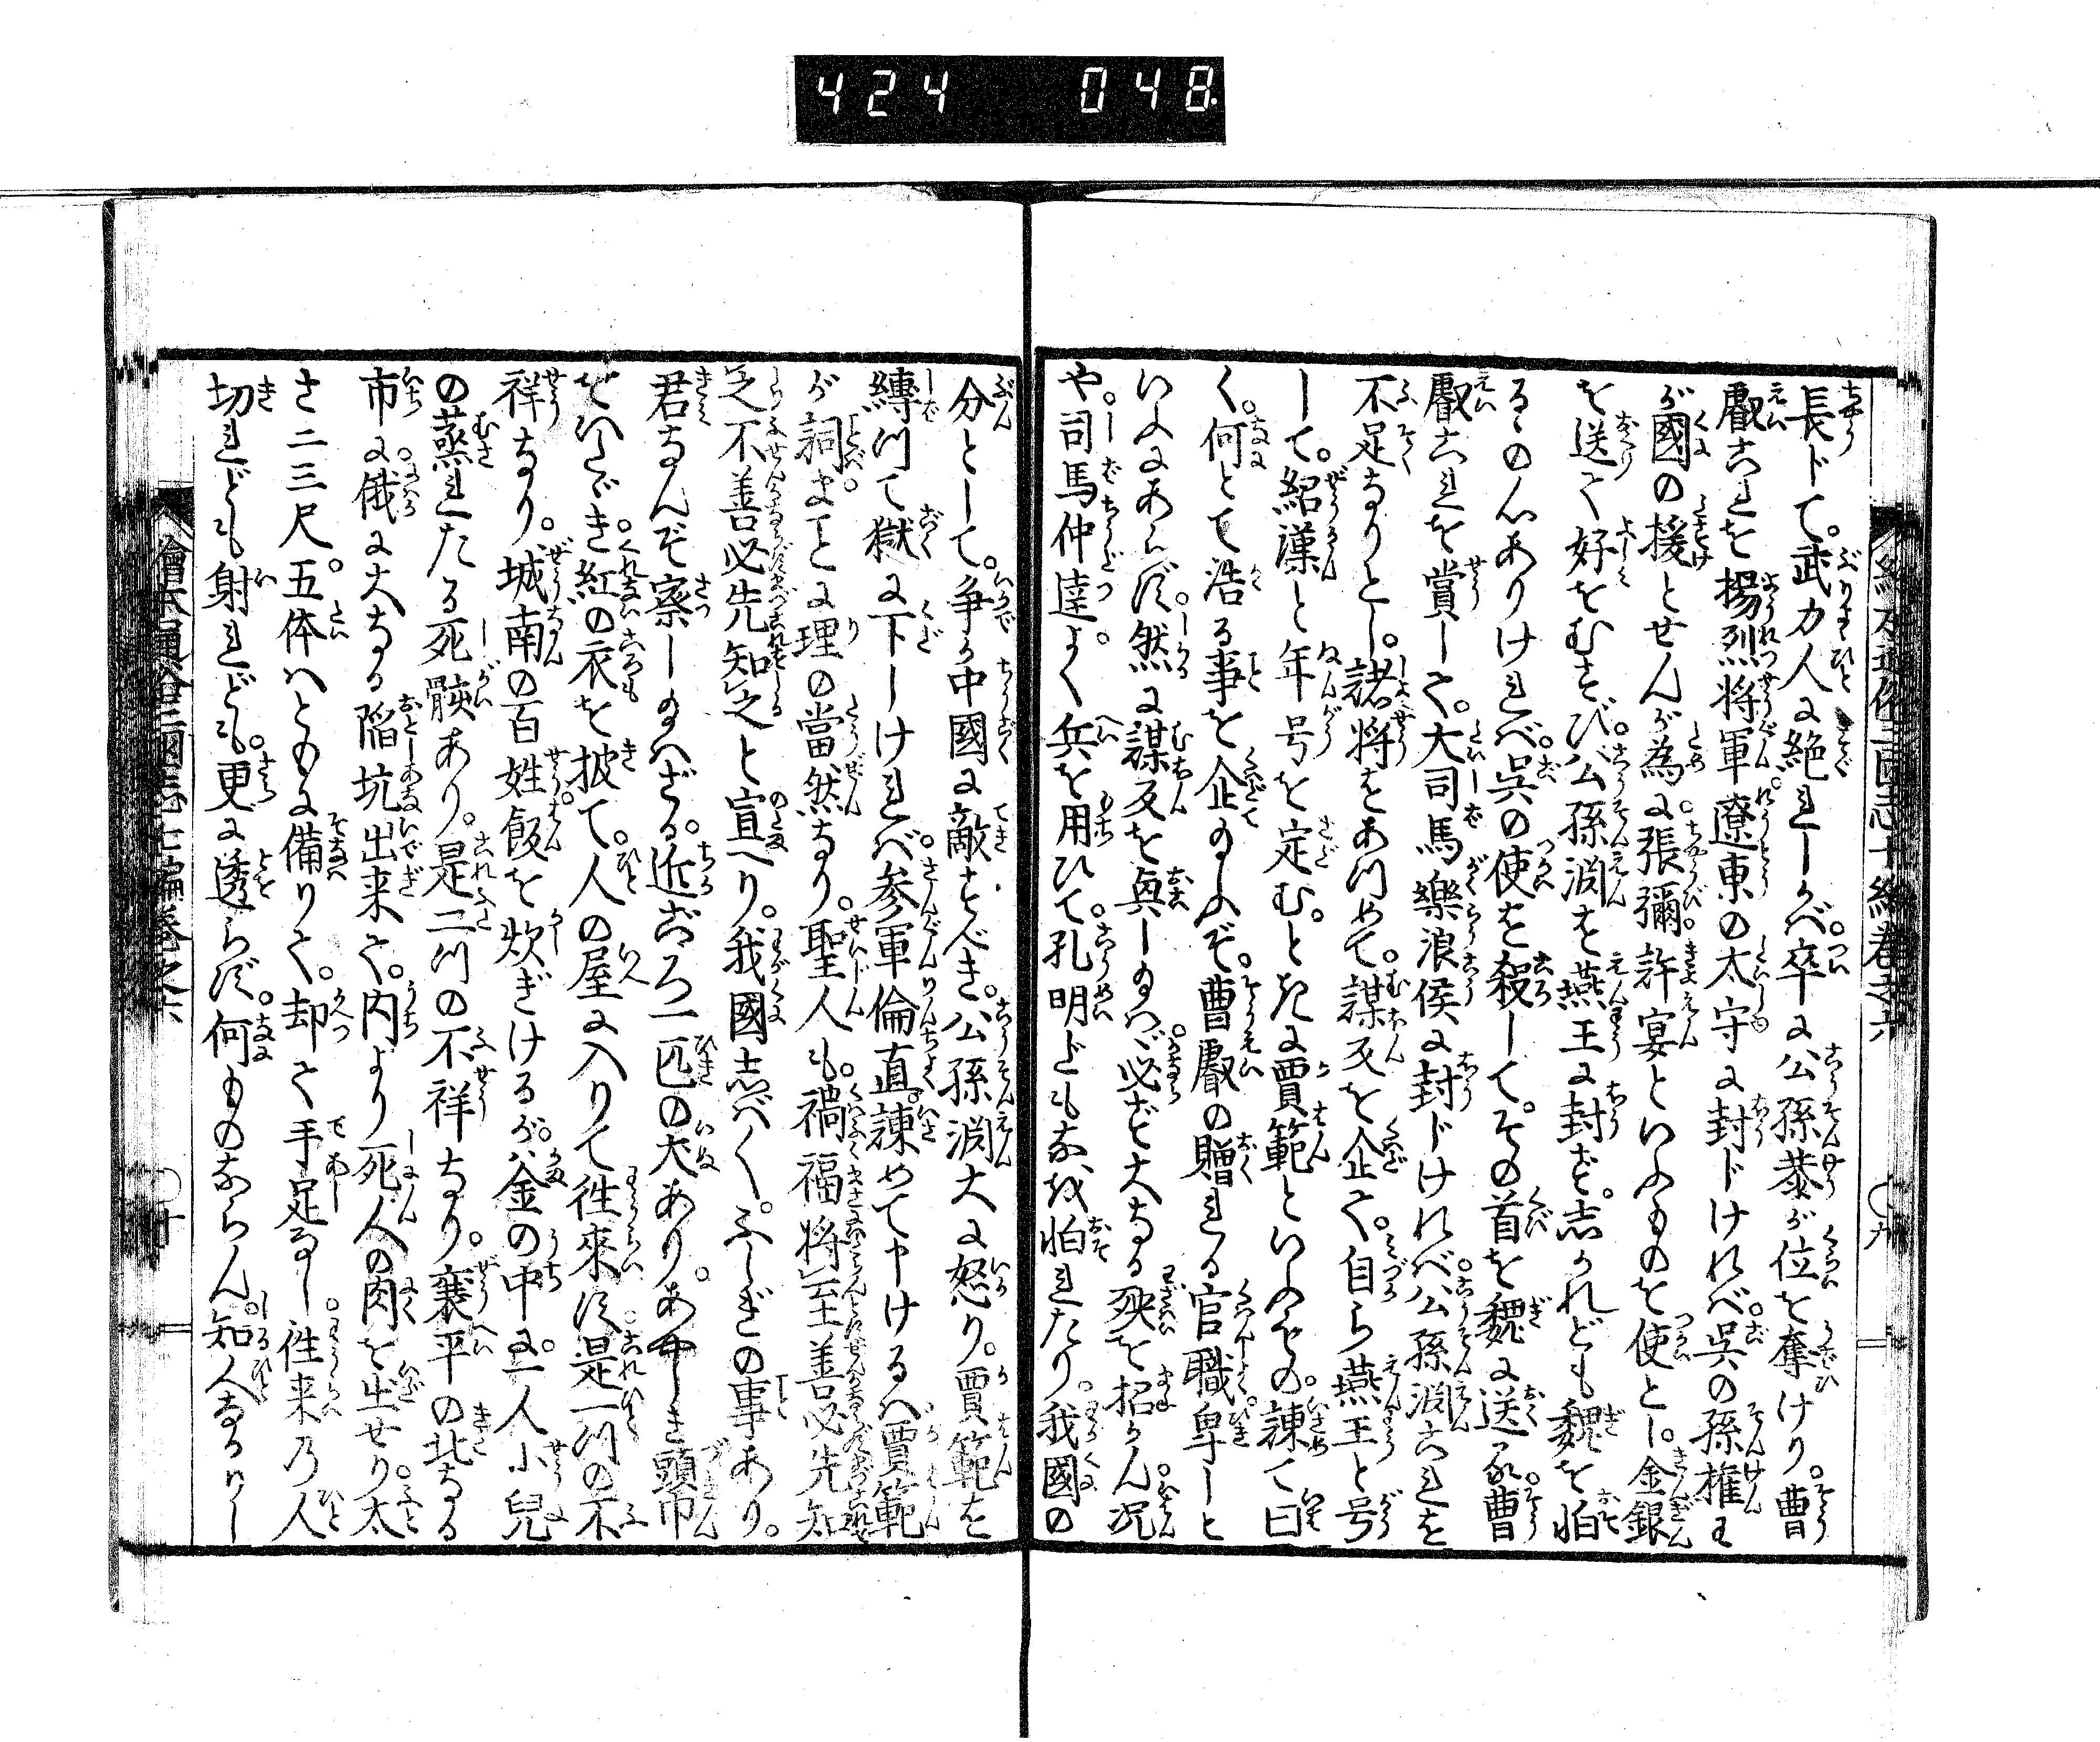 424 048
長ドて。武力人に絶れしかバ。卒に公孫恭が位を奪けり。曹
叡これを揚烈将軍。遼東の太守に封ドけれバ。呉の孫権わ
が國の援とせんが為に。張彌許宴といふものを使とし。金銀
を送て好をむすび。公孫淵を燕王に封ず。志かれども魏を怕
るゝの心ありけれバ。呉の使を殺して。その首を魏に送る。曹
叡これを賞して。大司馬樂浪侯に封ドけれバ。公孫淵これを
不足なりとし。諸将をあつめて。謀叛を企て。自ら燕王と号
して。紹漢と年号を定む。ときに賈範といふもの。諫て曰
く。何とて浩る事を企玉ふぞ。曹叡の贈れる官職卑しと
いふにあらず。然に謀反を興し玉ハヾ。必ず大なる殃を招かん。况
や司馬仲達よく兵を用ひて。孔明ドもなを怕れたり。我國の
分として。争か中國に敵すべき。公孫淵大に怒り。賈範を
縛つて獄に下しけれバ。参軍倫直。諫めて申けるハ。賈範
が詞まことに理の當然なり。聖人も。禍福将至善必先知
之不善必先知之と宣へり。我國志バ〱。ふしぎの事あり。
君なんぞ察し玉ハざる。近ごろ一匹の犬あり。あやしき頭巾
をいたゞき。紅の衣を披て。人の屋に入りて徃來す。是一つの不
祥なり。城南の百姓。飯を炊ぎけるが。釜の中に。一人小兒
の蒸れたる死骸あり。是二つの不祥なり。襄平の北なる
市に。俄に大なる陥坑出来て。内より死人の肉を出せり。太
さ二三尺。五体ハともに備りて。却て手足なし。徃来乃人
切れども射れども。更に透らず。何ものならん。知人なかりし